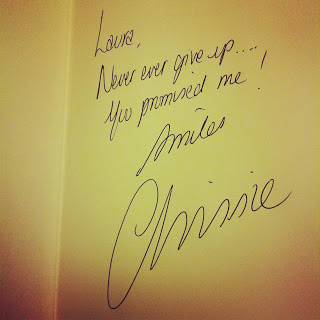 Laura,
Never ever give up....
You promised me!
Smiles
Chrissie